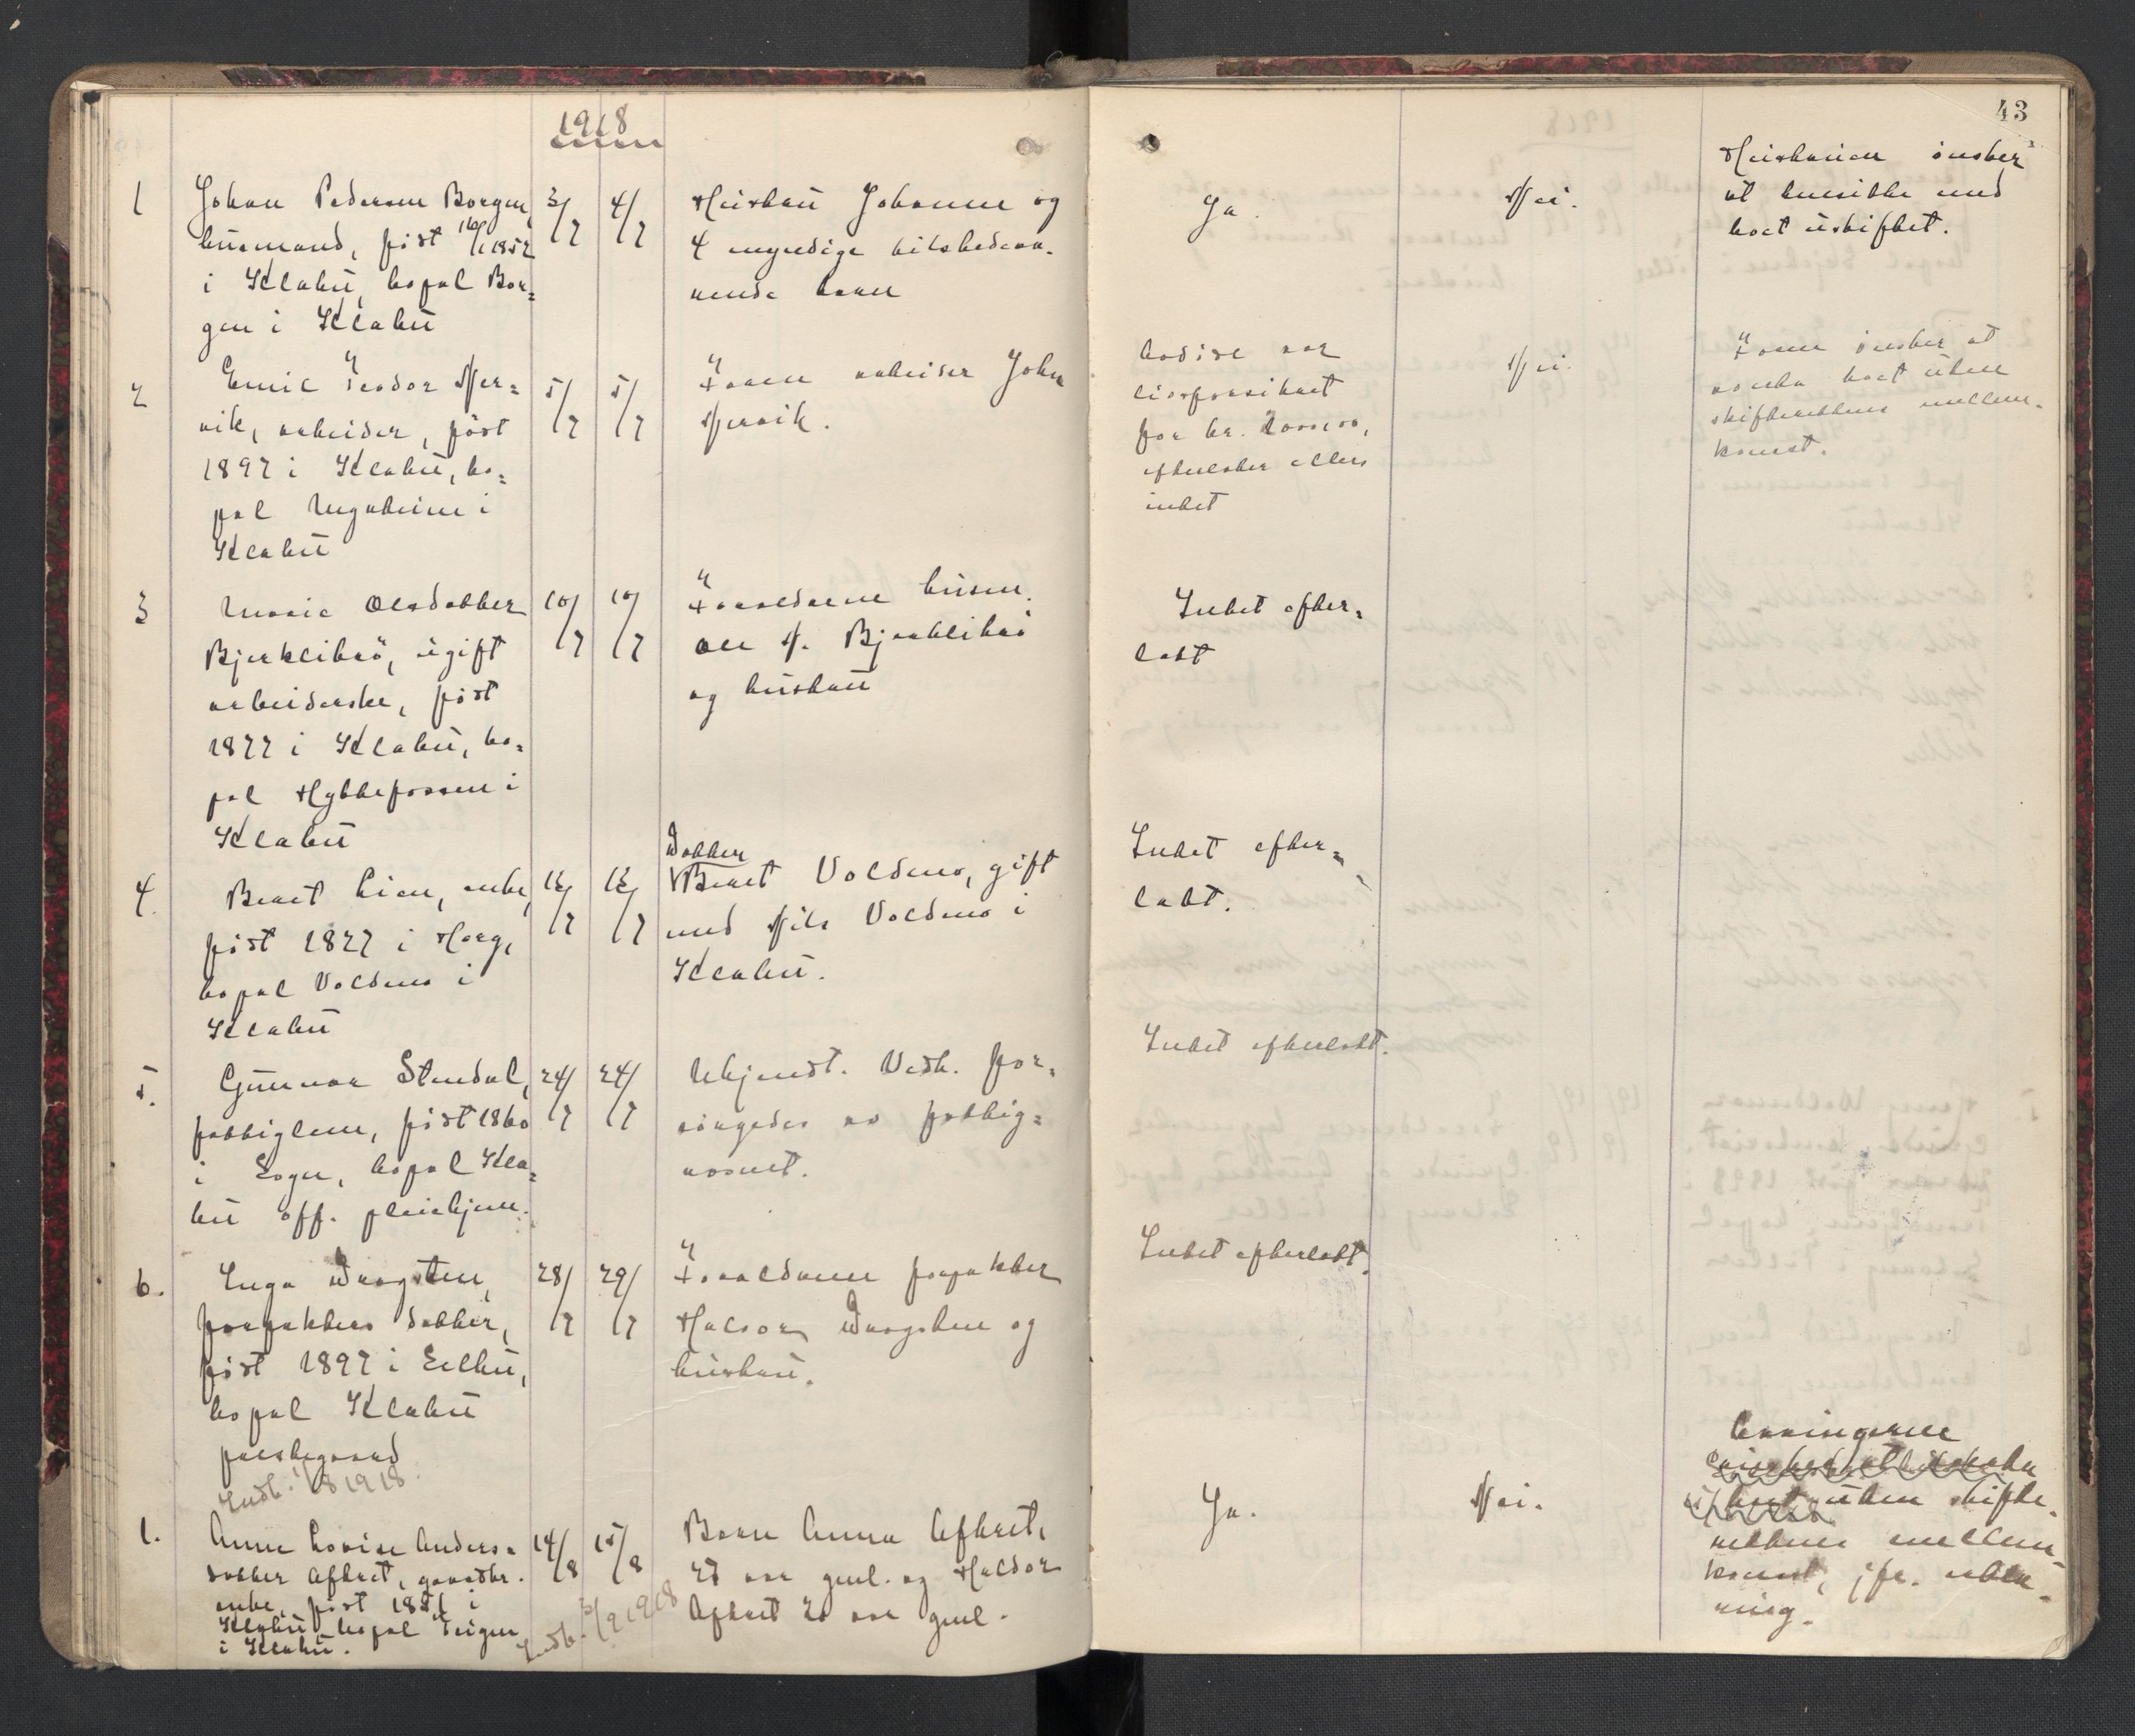 1918
43
1
Johan Pedersen Borgen,
husmand, født 16/1 1852
i Klæbu, bopæl Bor=
gen i Klæbu
3/7
4/7
Hustru Johanne og
4 myndige tilstedevæ-
rende barn
Ja.
Nei.
Hustruen ønsker
at hensitte med
boet uskiftet.
2
Emil Teodor Ner=
vik, arbeider, født
1897 i Klæbu, bo=
pæl Nyheim i
Klæbu
5/7
5/7
Faren arbeider John
Nervik.
Avdøde var
livsforsikret
for kr. 2000,00,
efterlater ellers
intet
Nei.
Faren ønsker at
overta boet uten
skifterettens mellem-
komst.
3
Marie Olsdatter
Bjerklibrø, ugift
arbeiderske, født
1877 i Klæbu, bo=
pæl Hyttefossen i
Klæbu
10/7
10/7
Forældrene husm.
Ole N. Bjerklibrø
og hustru
Intet efter=
latt
4.
Beret Lien, enke,
født 1827 i Horg,
bopæl Voldmo i
Klæbu
12/7
12/7
Datter
Beret Voldmo, gift
med Nils Voldmo i
Klæbu.
Intet efter=
latt.
5.
Gunvor Stendal,
fattiglem, født 1860
i Sogn, bopæl Klæ=
bu off. pleiehjem.
24/7
24/7
Ukjendt. Vedk. for=
sørgedes av fattig=
væsnet.
Intet efterlatt.
6.
Inga Dragsten,
forpakters datter,
født 1897 i Selbu,
bopæl Klæbu
prestegaard
28/7
29/7
Forældrene forpakter
Halvor Dragsten og
hustru.
Intet efterlatt.
Indb. 1/8 1918.
1.
Anne Lovise Anders=
datter Aftret, gaardbr.
enke, født 1851 i
Klæbu, bopæl Teigen
i Klæbu.
14/8
15/8
Barn Anna Aftret,
25 aar gml. og Halvor
Aftret 20 aar gml.
Indb. 3/9 1918
Ja.
Nei.
Arvingerne
boet uten skifte-
rettens mellem-
komst, jfr. erklæ-
ring.